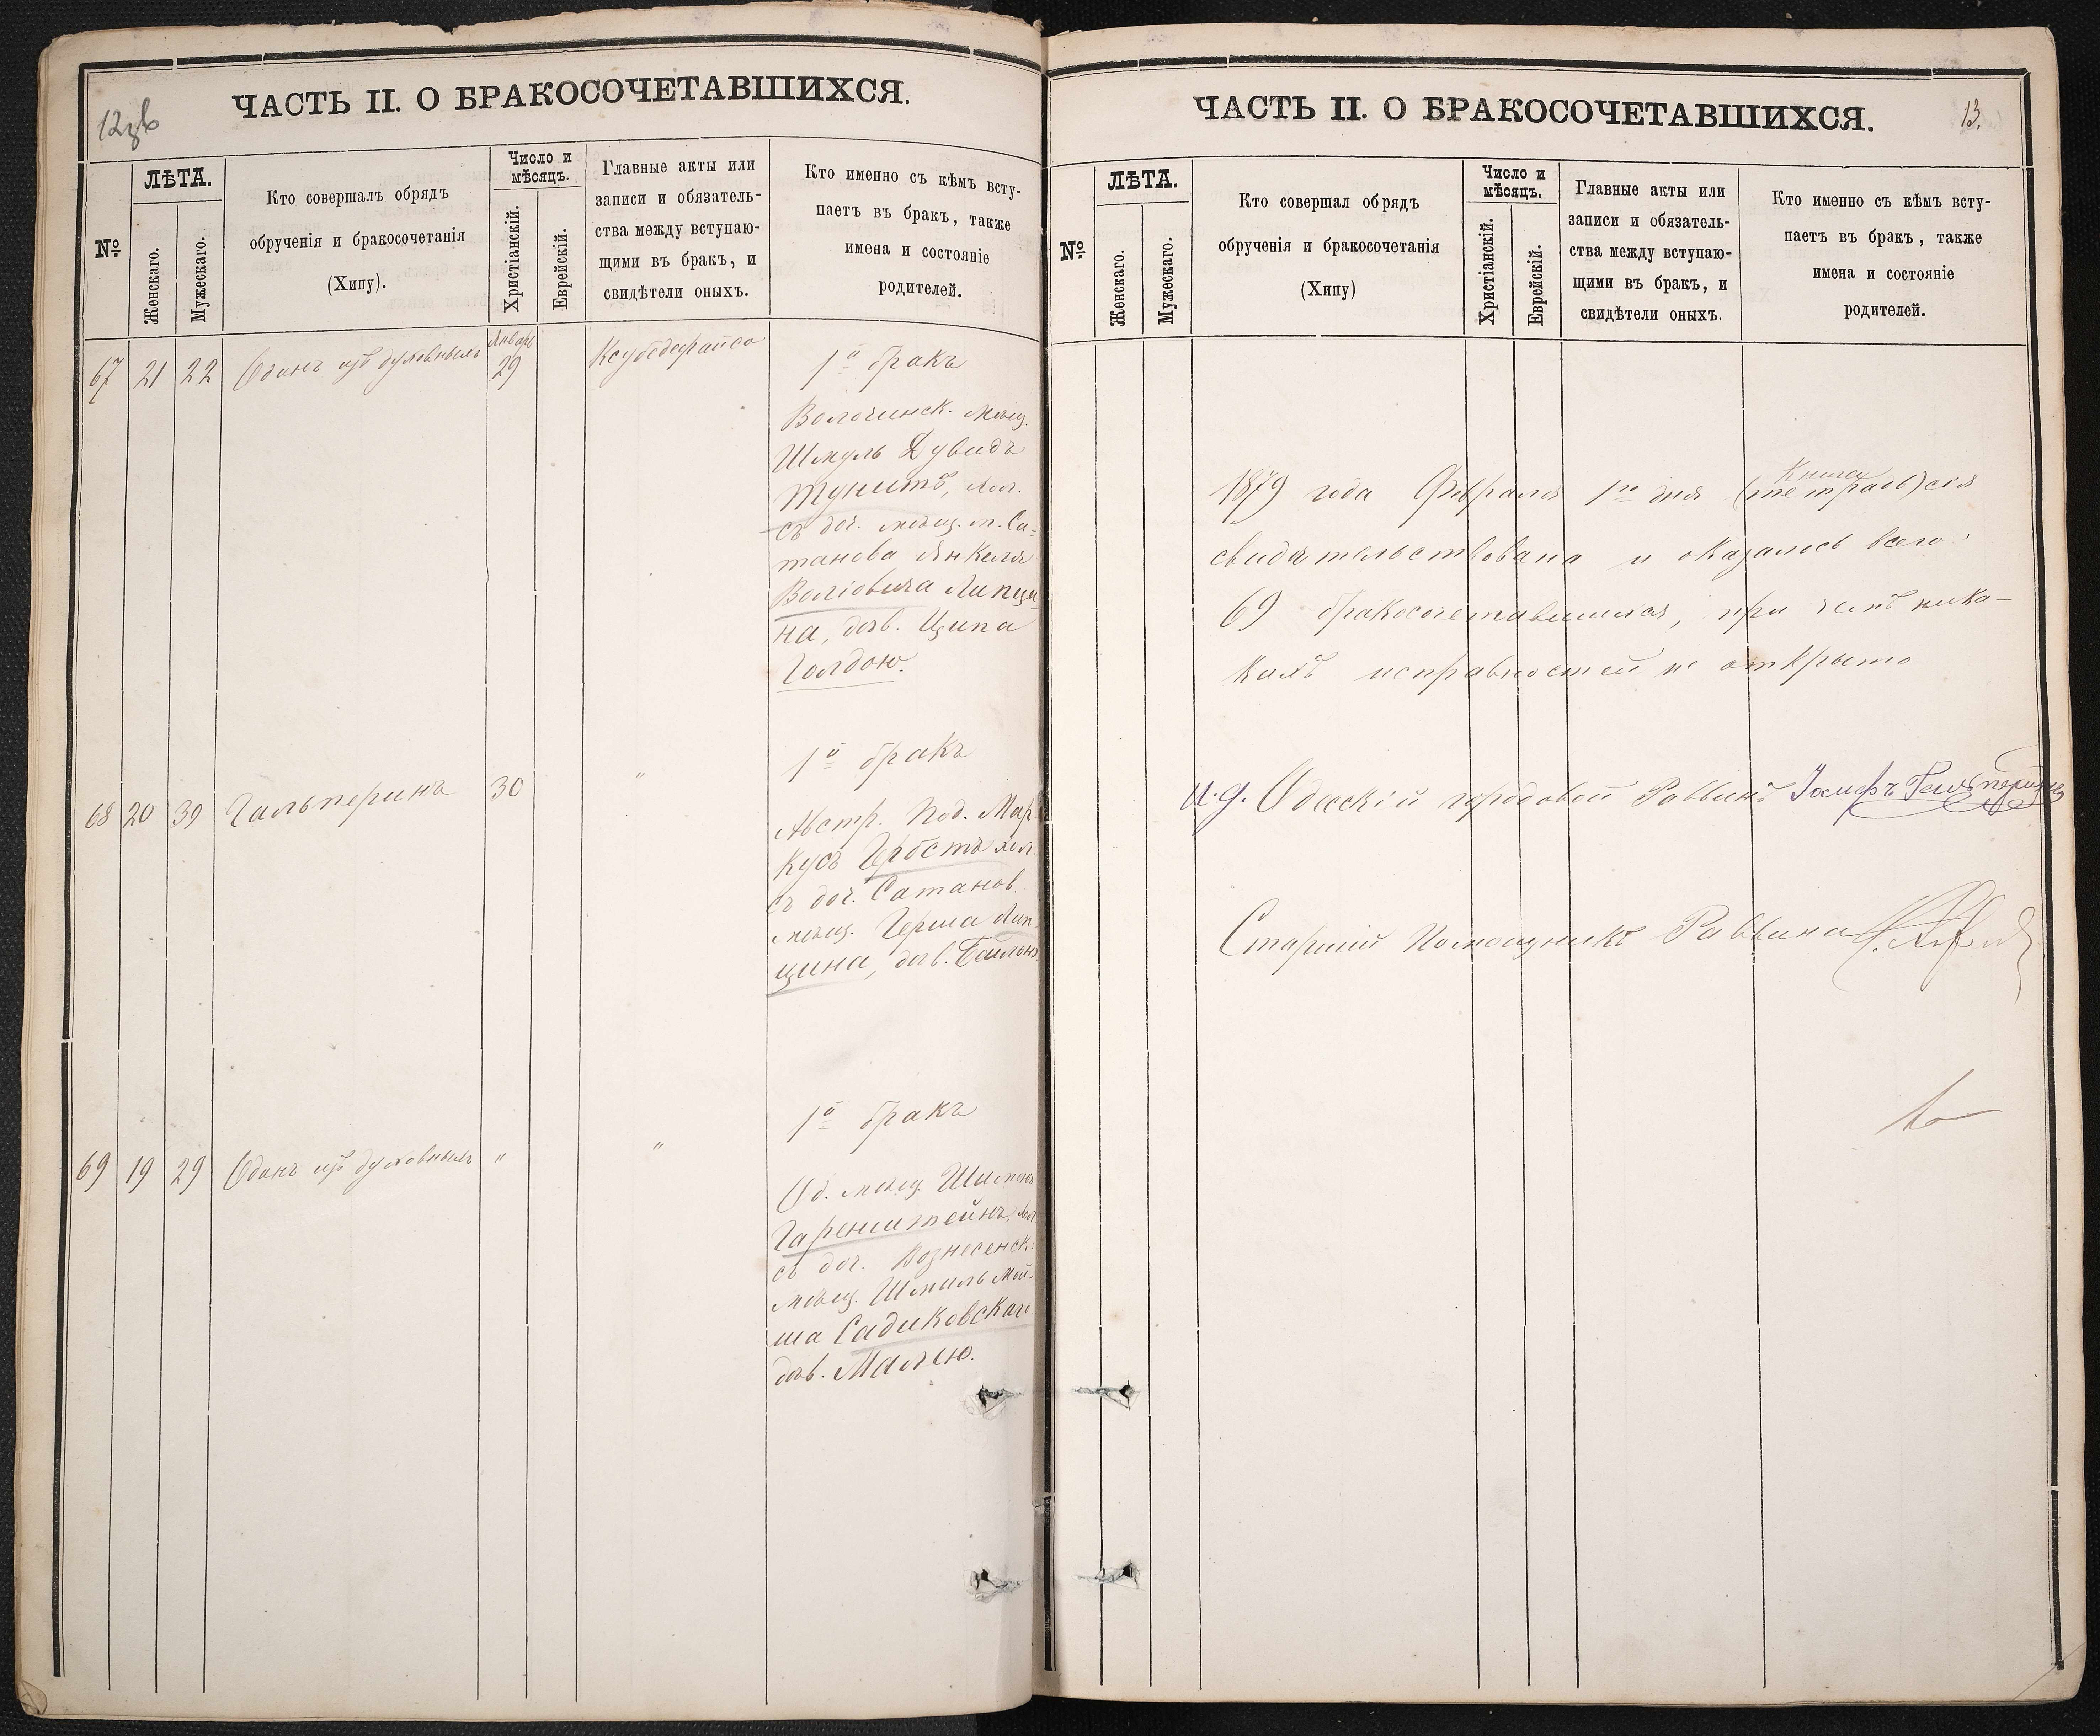 12 об
ЧАСТЬ II. О БРАКОСОЧЕТАВШИХСЯ.
№
ЛѢТА.
Женскаго.
Мужескаго.
Кто совершалъ обрядъ
обрученія и бракосочетанія
(Хипу).
Число и
мѣсяцъ.
Христіанскій.
Еврейскій.
Главные акты или
записи и обязатель-
ства между вступаю-
щими въ бракъ, и
свидѣтели оныхъ.
Кто именно съ кѣмъ всту-
паетъ въ бракъ, также
имена и состояніе
родителей.
67 21 22 Одинъ изъ духовныхъ
Январь
29
1й бракъ
Волочинск. мѣщ.
Шмуль Дувидъ
хол.
съ доч. мѣщ. м. Са-
танова Янкеля
Липщи
на, дѣв. Ципа
Голдою.
68 20 39 Гальперинъ 30 "
1й бракъ
Австр. Под. Мар
кусъ хол.
съ доч. Сатанов.
мѣщ. Герша Лип-
щина, дѣв. Бейлою
69 19 29 Одинъ изъ духовныхъ " "
1й бракъ
Од. мѣщ. Шимонъ
Гаренштейнъ, хол.
съ доч. Вознесенск.
мѣщ. Шмиль Мой-
ша Садиковскаго
дѣв. Малею.
ЧАСТЬ II. О БРАКОСОЧЕТАВШИХСЯ.
13.
№
ЛѢТА.
Женскаго.
Мужескаго.
Кто совершал обрядъ
обрученія и бракосочетанія
(Хипу)
Число и
мѣсяцъ.
Христіанскій.
Еврейскій.
Главные акты или
записи и обязатель-
ства между вступаю-
щими въ бракъ, и
свидѣтели оныхъ.
Кто именно съ кѣмъ всту-
паетъ въ бракъ, также
имена и состояніе
родителей.
Книга
1879 года Февраля 1го дня (тетрадь) сія
свидѣтельствована и оказалось всего
69 бракосочетавшихся, при чемъ ника-
кихъ исправностей не открыто
И. д. Одесскій городовой Раввинъ Іосифъ Гельперинъ
Старшій Помощникъ Раввина